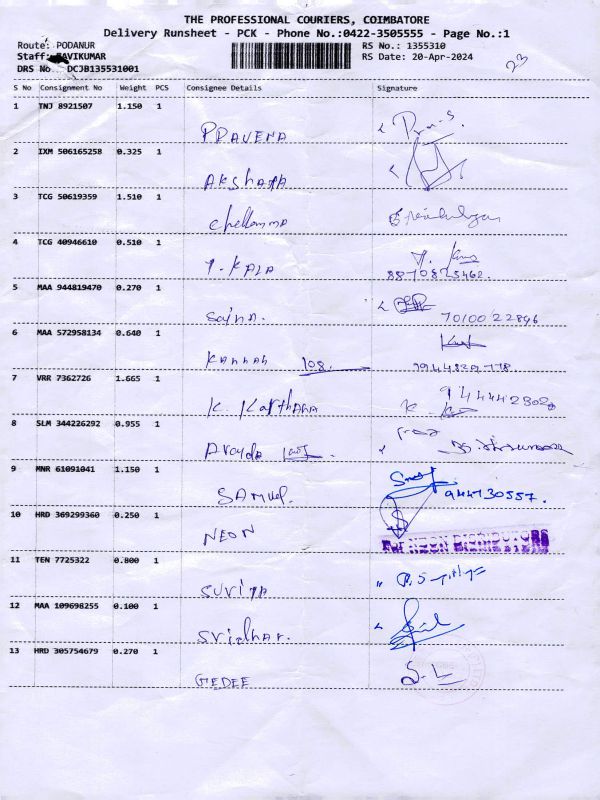 THE PROFESSIONAL COURIERS, COIMBATORE
Delivery Runsheet - PCK - Phone No.:0422-3505555 - Page No.:1
Route: PODANUR
RS No.: 1355310
Staff: RAVIKUMAR
RS Date: 20-Apr-2024
DRS No. DCJB135531001
23
S No Consignment No Weight PCS Consignee Details Signature
1 TNJ 8921507 1.150 1
PRAVENA
2 IXM 506165258 0.325 1
AKshaya
3 TCG 50619359 1.510 1
chellamma
4 TCG 40946610 0.510 1
T. KALA
5 MAA 944819470 0.270 1
Saina. 7010022896
6 MAA 572958134 0.640 1
KANNAN 108.
7 VRR 7362726 1.665 1
K. Karthana
8 SLM 344226292 0.955 1
9 MNR 61091041 1.150 1
SAMuel. 944730557.
10 HRD 369299360 0.250 1
NEON For NEON DISTRIBUTORS
11 TEN 7725322 0.800 1
SURIYA
12 MAA 109698255 0.100 1
Sridhar.
13 HRD 305754679 0.270 1
GEDEE